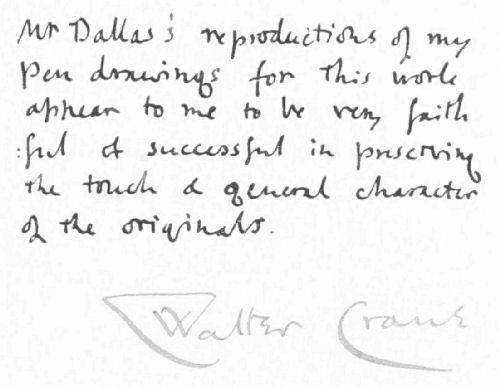 Mr Dallas's reproductions of my
pen drawings for this work
appear to me to be very faith
:ful & successful in preserving
the touch & general character
of the originals.
Walter Crane